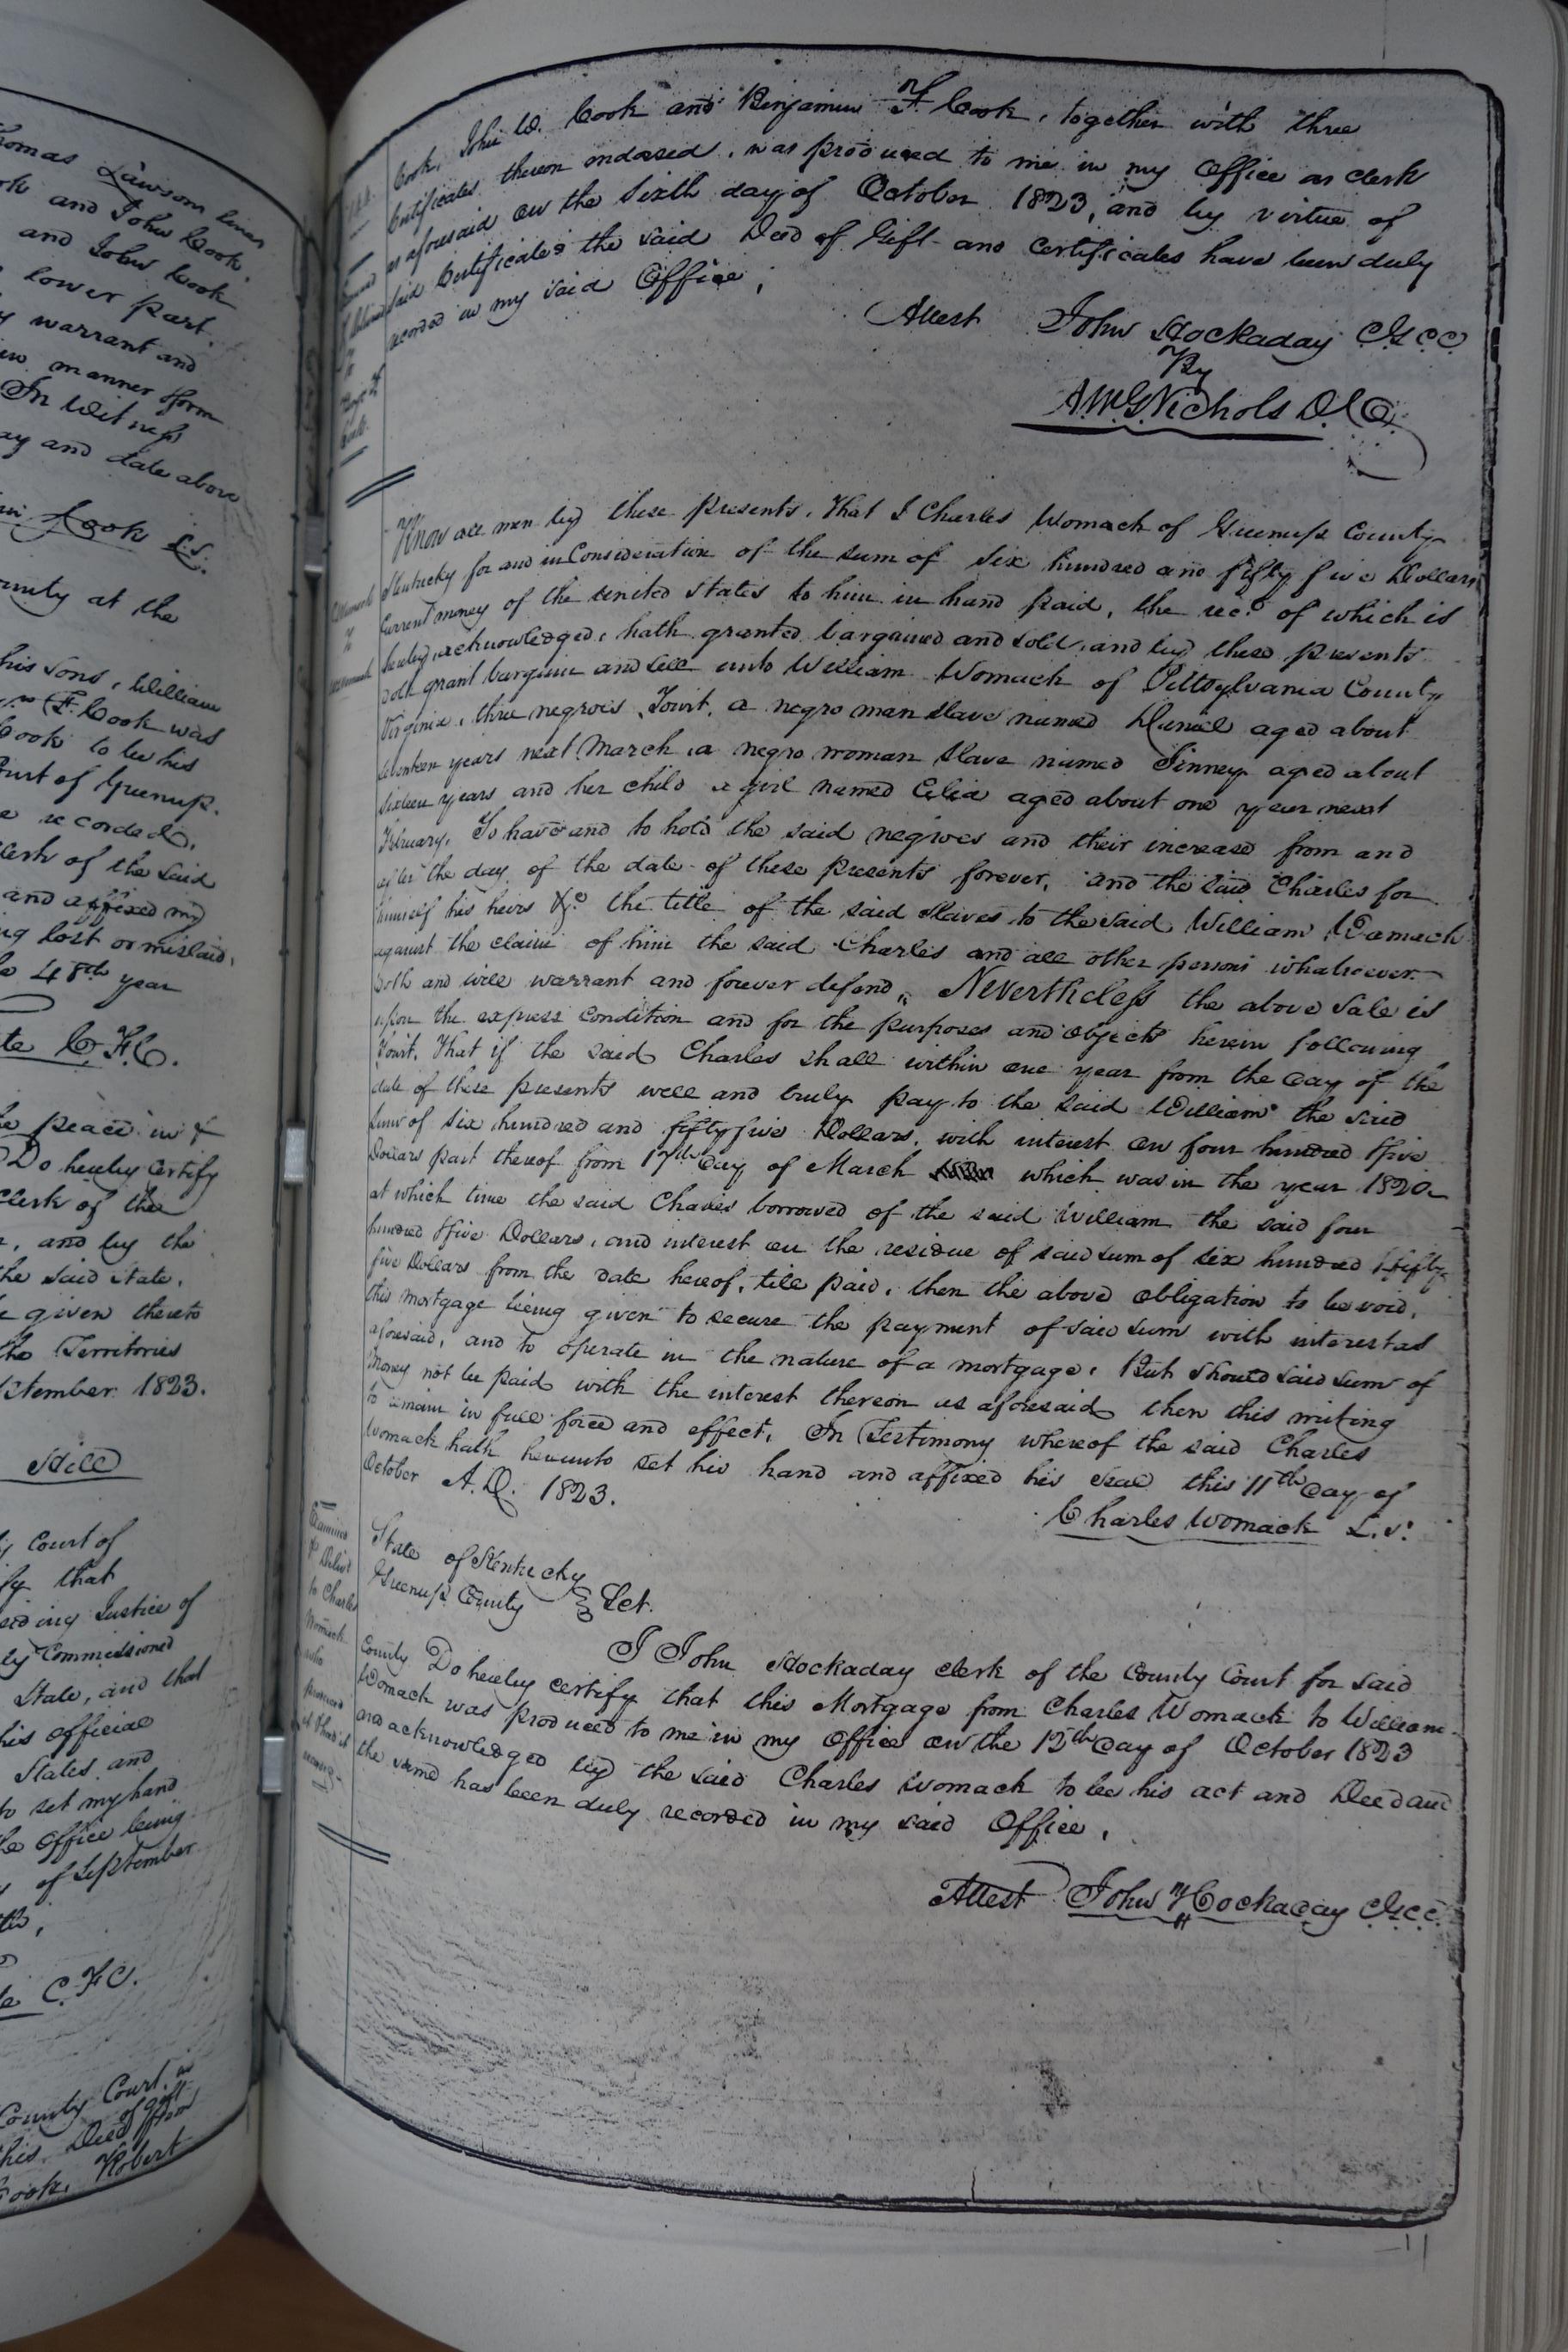 homas Lawson lines
ok and John Cook,
and John Cook
lower part.
warrant and
in manner & form
In Witness
ay and date above
Cook L.S.
ounty at the
his sons, William
F. Cook was
Cook to be his
Court of Greenup.
e recorded.
clerk of the said
and affixed my
ng lost or mislaid,
48th year
te C.F.C.
he peace in &
Do hereby Certify
Clerk of the
, and by the
the said State,
given thereto
the Territories
September 1823.
Hill
y Court of
fy that
siding Justice of
ly Commissioned
State, and that
his official
States and
to set my hand
he Office being
of September
C.F.C.
County Court,
of Gift
his Deed from
Cook, Robert
Cook, John W. Cook and Benjamin F. Cook, together with three
Certificates thereon endorsed, was produced to me in my Office as clerk
as aforesaid on the Sixth day of October 1823, and by virtue of
said Certificates the said Deed of Gift and certificates have been duly
recorded in my said Office,
Attest John Hockaday C.G.C.C
By
A McG Nichols D.C.
Know all men by these presents, That I Charles Womach of Greenup County
Kentucky for and in Consideration of the sum of Six hundred and fifty five Dollars
Current money of the United States to him in hand paid, the rec.t of which is
hereby acknowledged, hath granted, bargained and sold, and by these presents
doth grant bargain and sell unto William Womack of Pittsylvania County
Virginia, three negroes, Towit, a negro man slave named aged about
seventeen years next March, a negro woman slave named Jinney aged about
sixteen years and her child a girl named Celia aged about one year next
February, To have and to hold the said negroes and their increase from and
after the day of the date of these presents forever, and the said Charles for
himself his heirs &c the title of the said Slaves to the said William Womack
against the claim of him the said Charles and all other persons whatsoever
doth and will warrant and forever defend, Nevertheless the above sale is
upon the express condition and for the purposes and objects herein following
Towit, That if the said Charles shall within one year from the day of the
date of these presents well and truly pay to the said William the said
sum of six hundred and fifty five Dollars, with interest on four hundred & five
Dollars part thereof from 17th day of March which was in the year 1820
at which time the said Charles borrowed of the said William the said four
hundred & five Dollars, and interest on the residue of said sum of six hundred & fifty
five Dollars from the date hereof, till paid, then the above obligation to be void,
this mortgage being given to secure the payment of said sum with interest as
aforesaid, and to operate in the nature of a mortgage, But should said sum of
money not be paid with the interest thereon as aforesaid then this writing
to remain in full force and effect, In Testimony whereof the said Charles
Womack hath hereunto set his hand and affixed his seal this 11th day of
October A.D. 1823.
Charles Womack L.S.
Examined
& Deliv'd
to Charles
Womack
who
produced
State of Kentucky
Greenup County Sct.
I John Hockaday clerk of the County Court for said
County Do hereby certify that this Mortgage from Charles Womack to William
Womack was produced to me in my Office on the 12th day of October 1823
and acknowledged by the said Charles Womack to be his act and Deed and
the same has been duly recorded in my said Office,
Attest John Hockaday C.G.C.C.